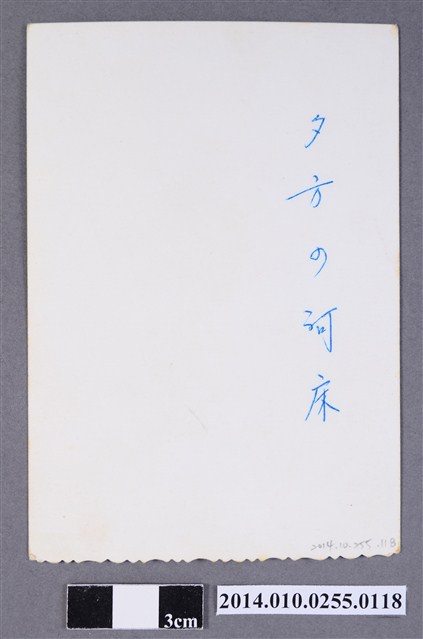 夕方の河床
2014.10.255.118
3cm
2014.010.0255.0118